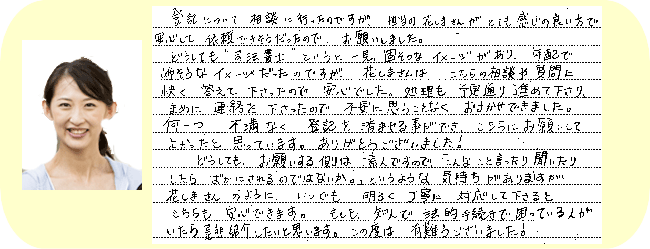 登記について 相談に行ったのですが、担当の花しまさんがとても感じの良い方で
安心して 依頼できそうだったので、お願いしました。
どうしても "司法書士" というと、一見、固そうな イメージがあり、年配で
気難そうなイメージだったのですが、花しまさんは、こちらの相談や質問に
快く 答えて 下さったので 安心でした。処理も 予定通り 進めて下さり、
まめに 連絡を 下さったので 不安に思うことなく おまかせできました。
何一つ 不満なく 登記を 済ませる事ができ、こちらにお願いして
よかったと 思っています。ありがとうございました!
どうしても、お願いする側は 素人ですので「こんなこと言ったり 聞いたり
したら ばかにされるのではないか。」というような 気持ちがありますが
花しまさんのように、いつでも 明るく 丁寧に 対応して下さると
こちらも 安心できます。もしも、知人で 法的手続きで 困っている人が
いたら是非紹介したいと思います。この度は 有難うございました!